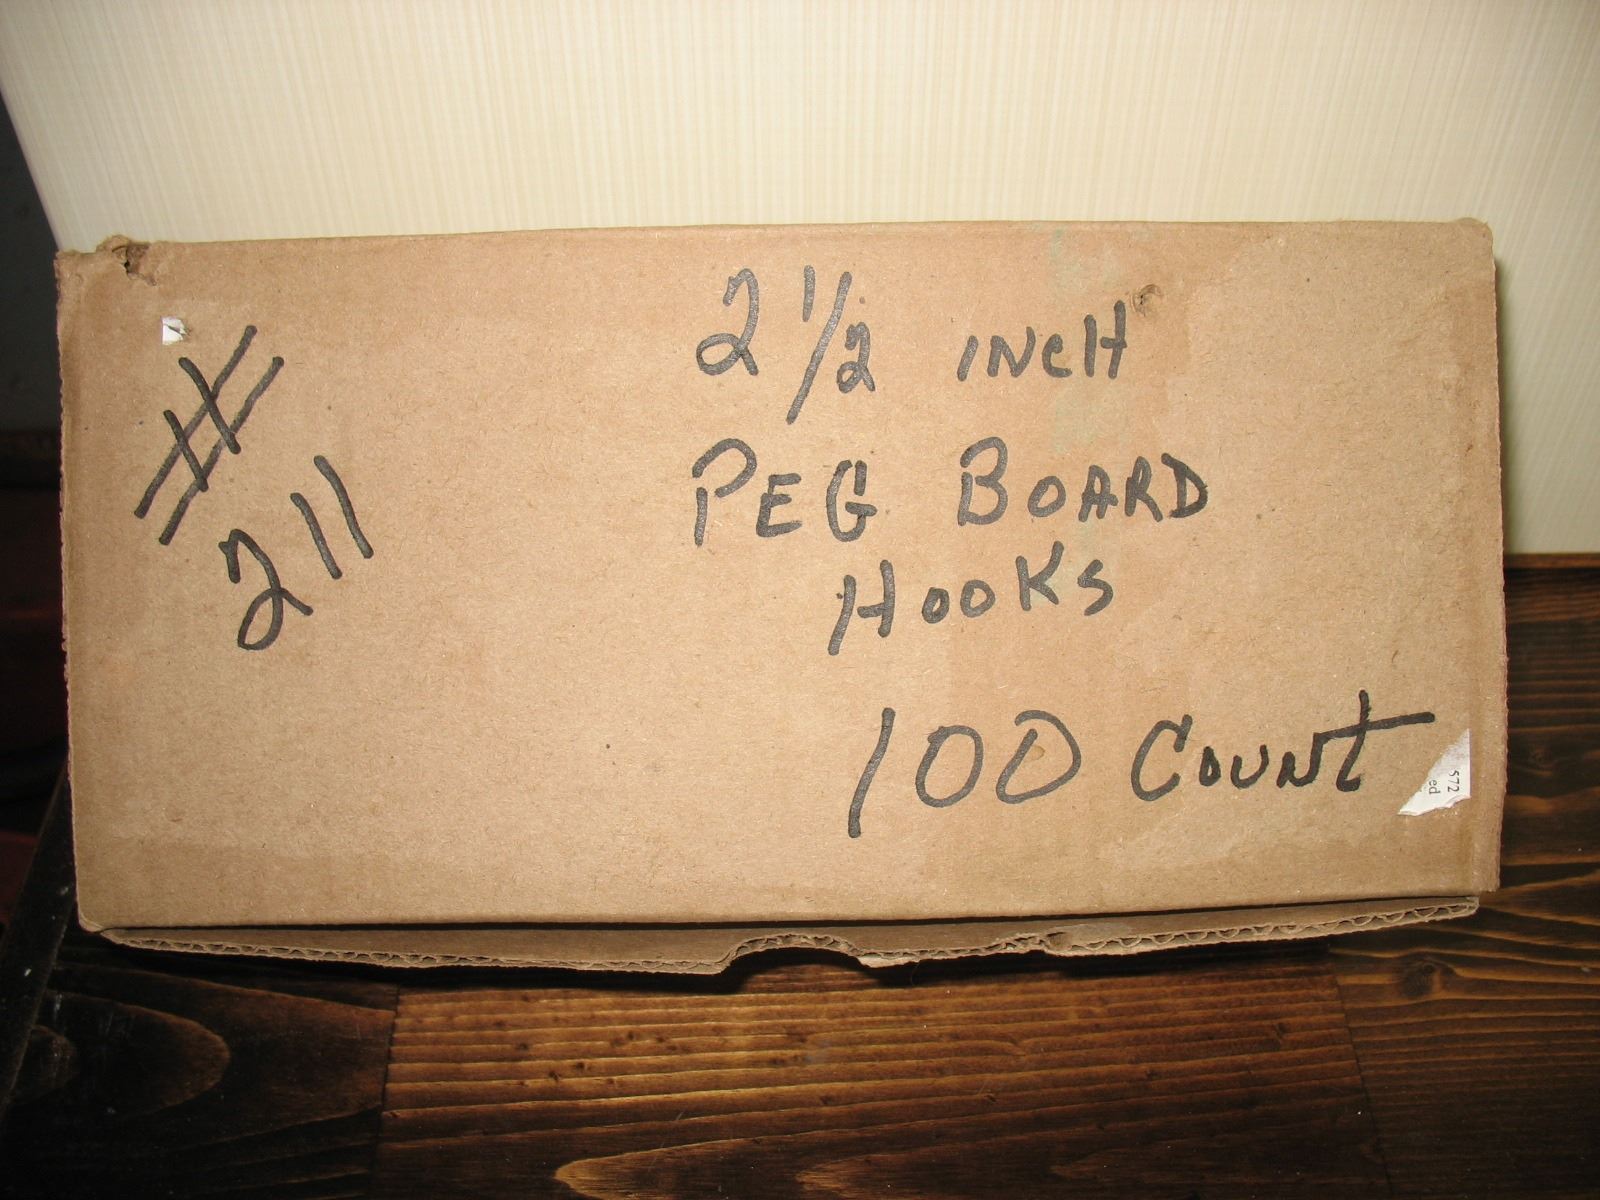 #
211
2 1/2 INCH
PEG BOARD
HOOKS
100 COUNT
572
ed